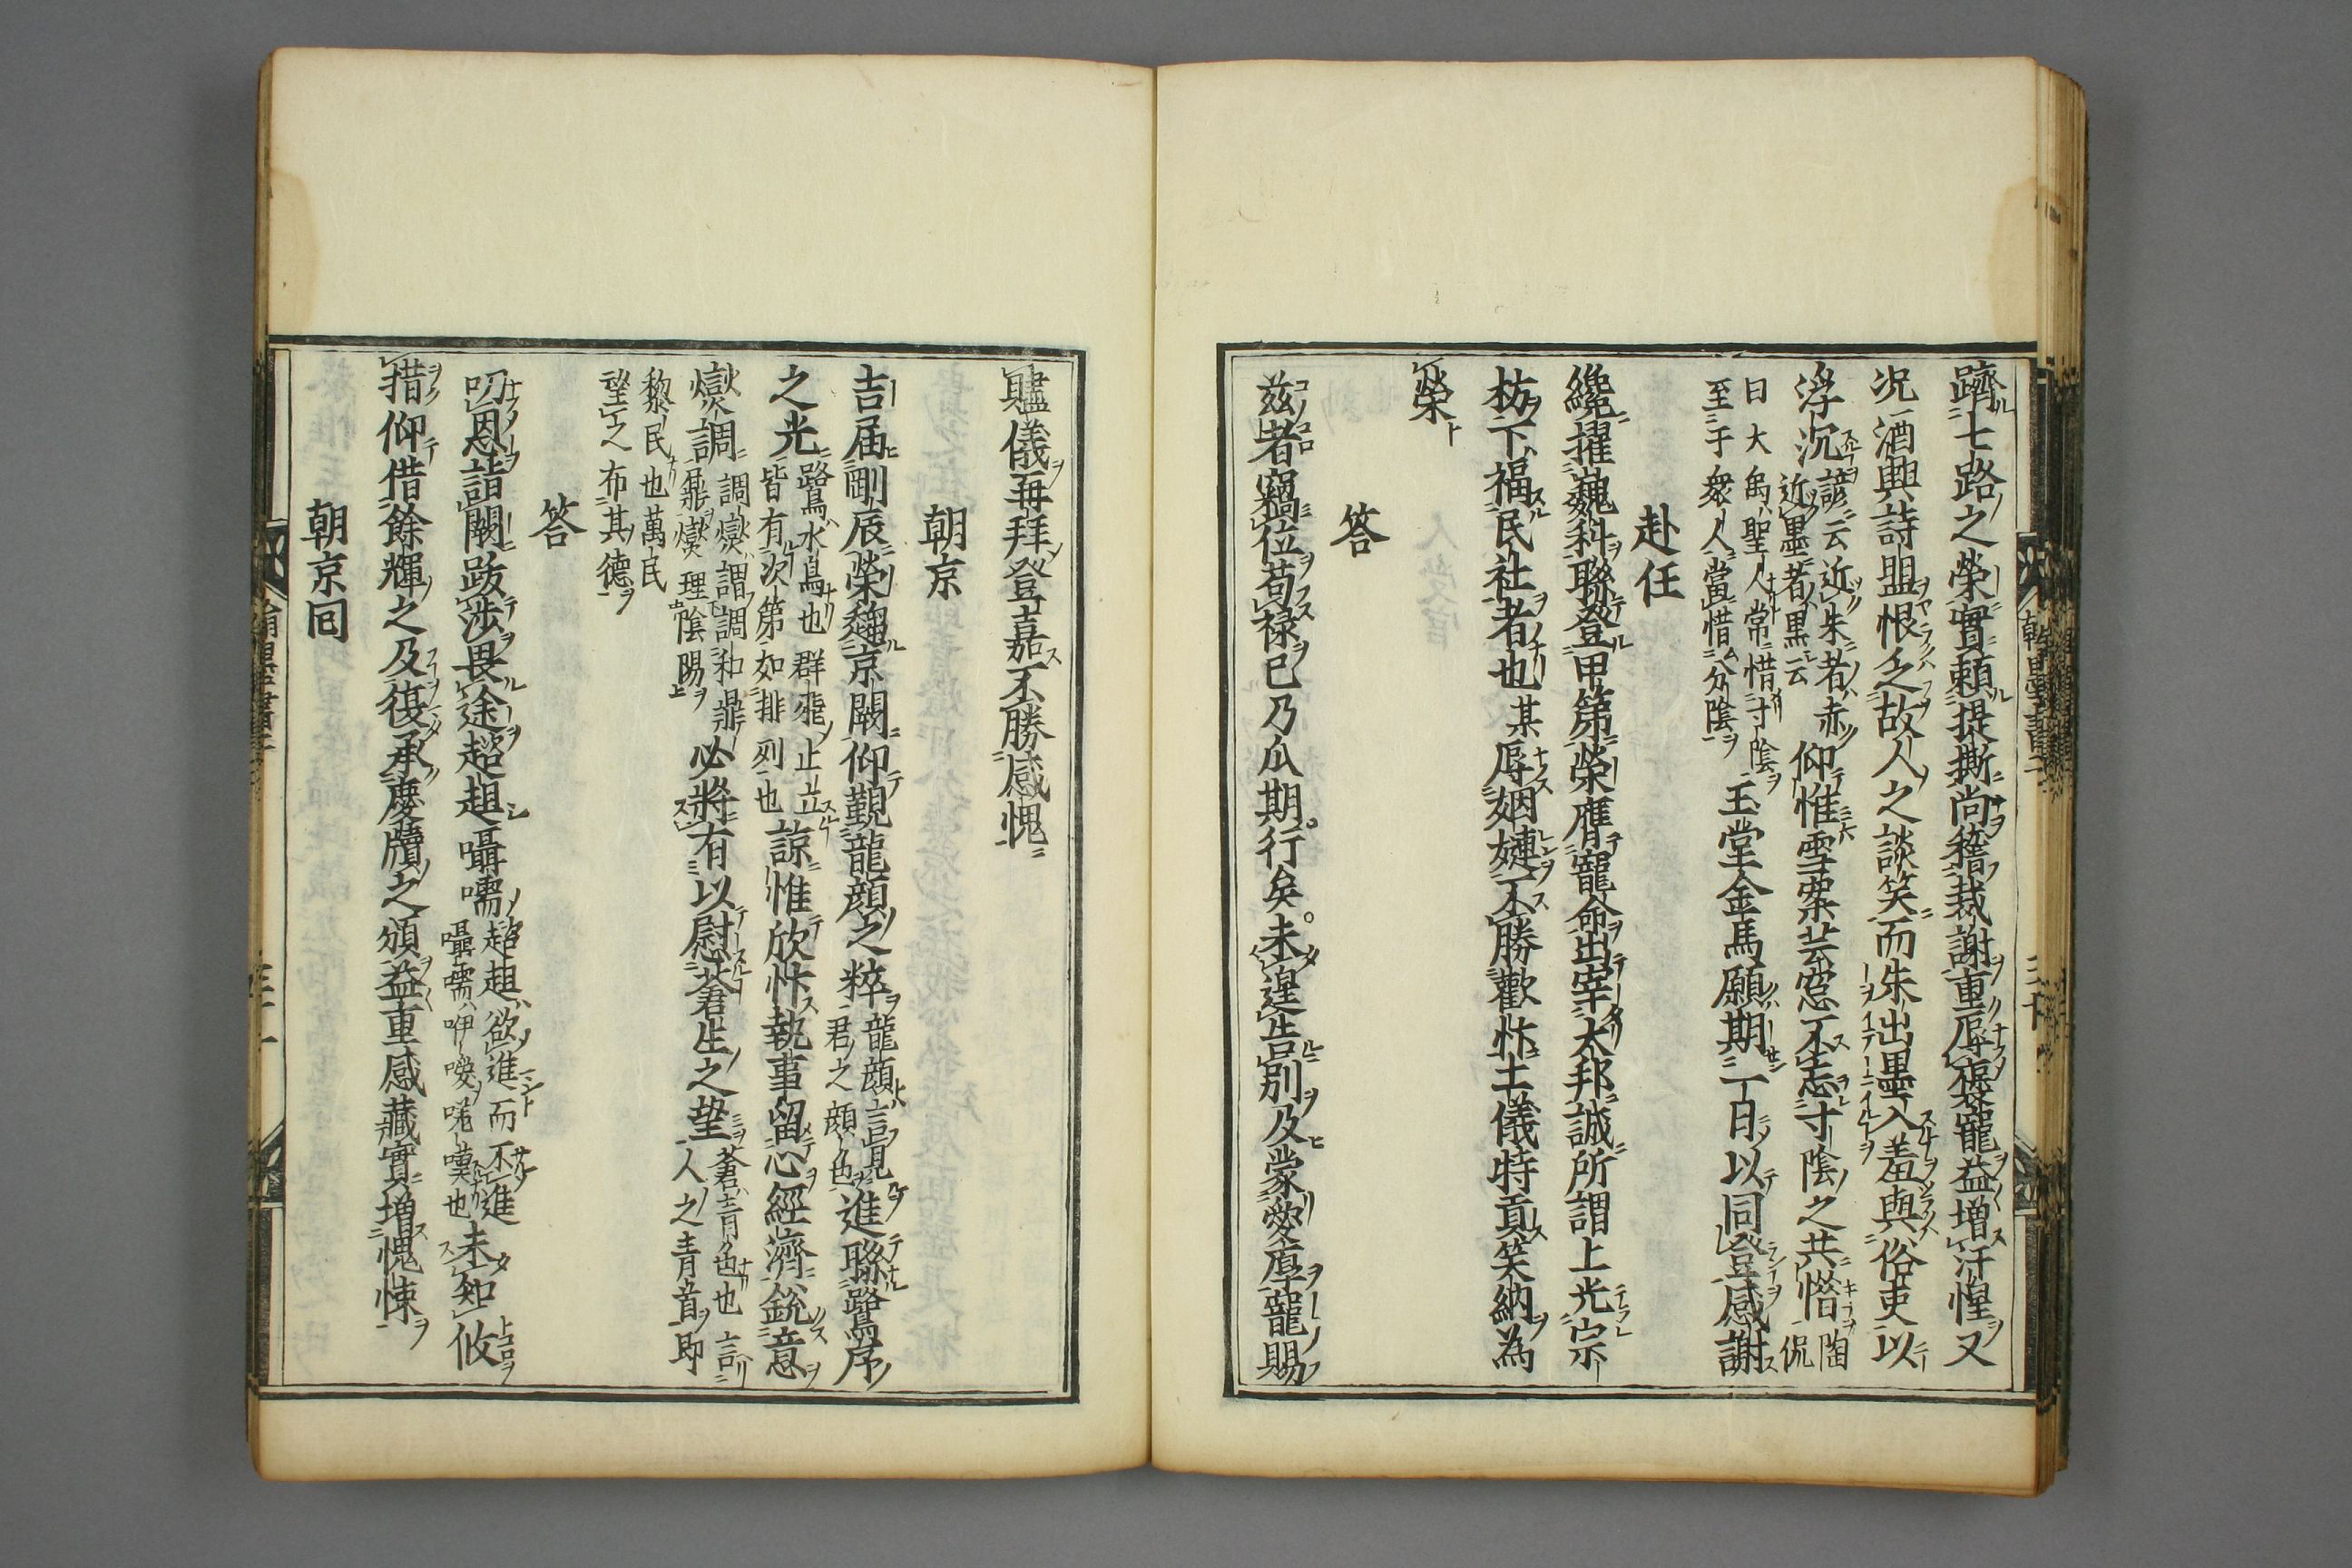 躋士路之榮實頼提撕尚稽裁謝重辱褒寵益増汗惶又
况酒興詩盟恨乏故人之談笑而朱出墨入羞與俗吏以
浮沉
諺云近朱者赤
近墨者黒云
仰惟雪案芸窓不志寸陰之共惜
陶侃
曰大禹聖人常惜寸陰
至于衆人當惜分陰
玉堂金馬願期一日以同登感謝
赴任
纔擢巍科聯登甲第榮膺寵命出宰太邦誠所謂上光宗
枋下福民社者也某辱姻婕不勝歡忭土儀特貢笑納為
榮
答
茲者竊位苟禄已乃瓜期行矣未遑告別及蒙愛厚寵賜
贐儀再拜登嘉不勝感愧
朝京
吉届剛辰榮趨京闕仰觀龍顔之粹
龍顔言見
君之顔色
進聯鷺序
之光
鷺鳥水鳥也群飛止立
皆有次第如排列也
諒惟欣忭執事留心經濟銳意
燮調
調燮謂調和鼎
鼐燮理陰陽
必將有以慰蒼生之望
蒼青色也言
人之青首即
黎民也萬民
望之布其德
答
叨恩詣闕跋涉畏途趑趄囁嚅
趑趄欲進而不進
囁嚅呻嗳唴嘆也
未知攸
措仰借餘輝之及復承慶牘之頒益重感藏實増愧悚
朝京回